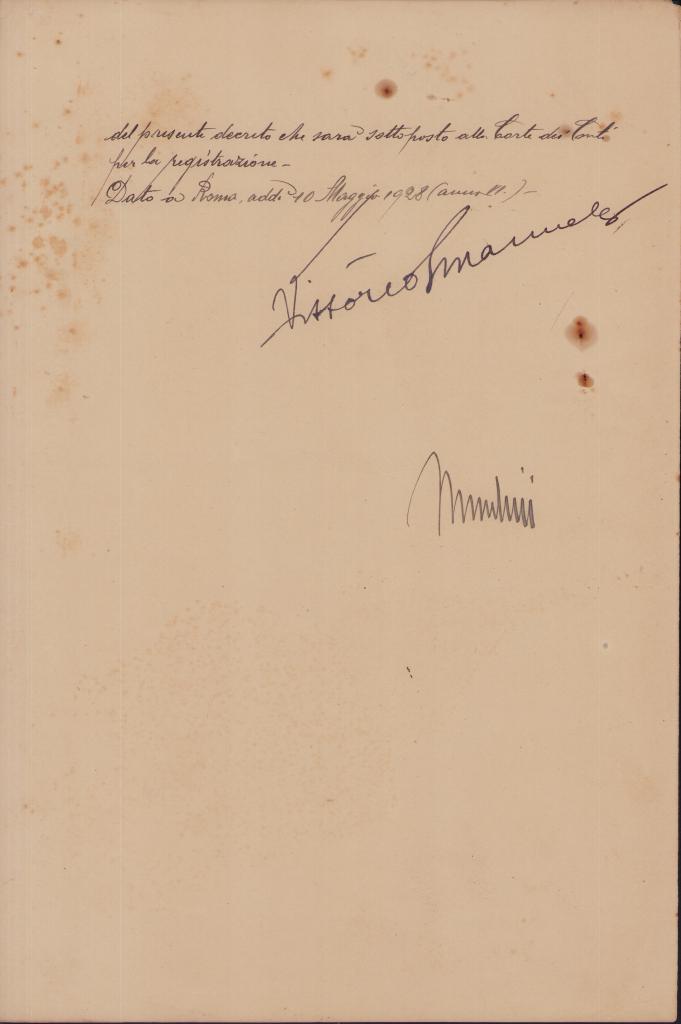 del presente decreto che sarà sottoposto alla Corte dei Conti
per la registrazione -
Dato a Roma, addì 10 Maggio 1928 (anno VI.) -
Vittorio Emanuele
Mussolini